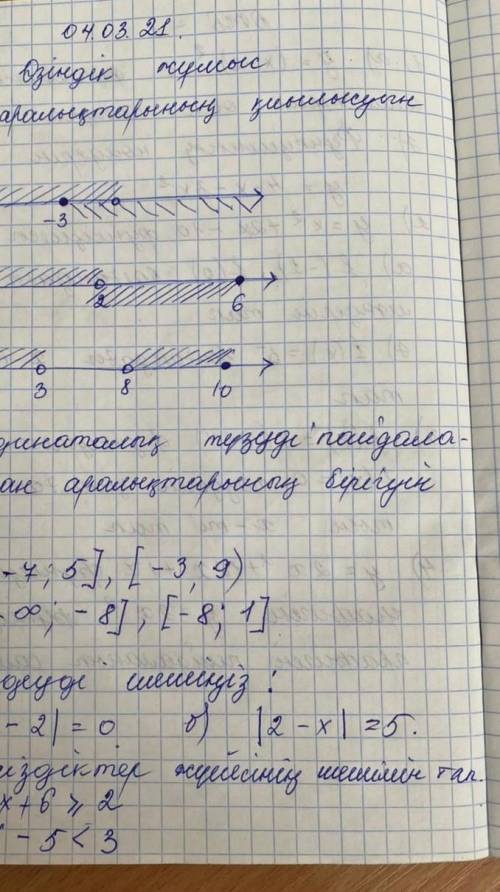 04.03.21.
Өзіндік жұмыс
аралықтарының қиылысуын
-3
2 6
3 8 10
динаталық түзуді пайдала-
ан аралықтарының бірігуін
-7; 5], [-3; 9)
-∞; -8], [-8; 1]
деуді шешіңіз:
- 2| = 0 б) |2 - x| = 5.
сіздіктер жүйесінің шешімін тап.
x + 6 ⩾ 2
- 5 < 3